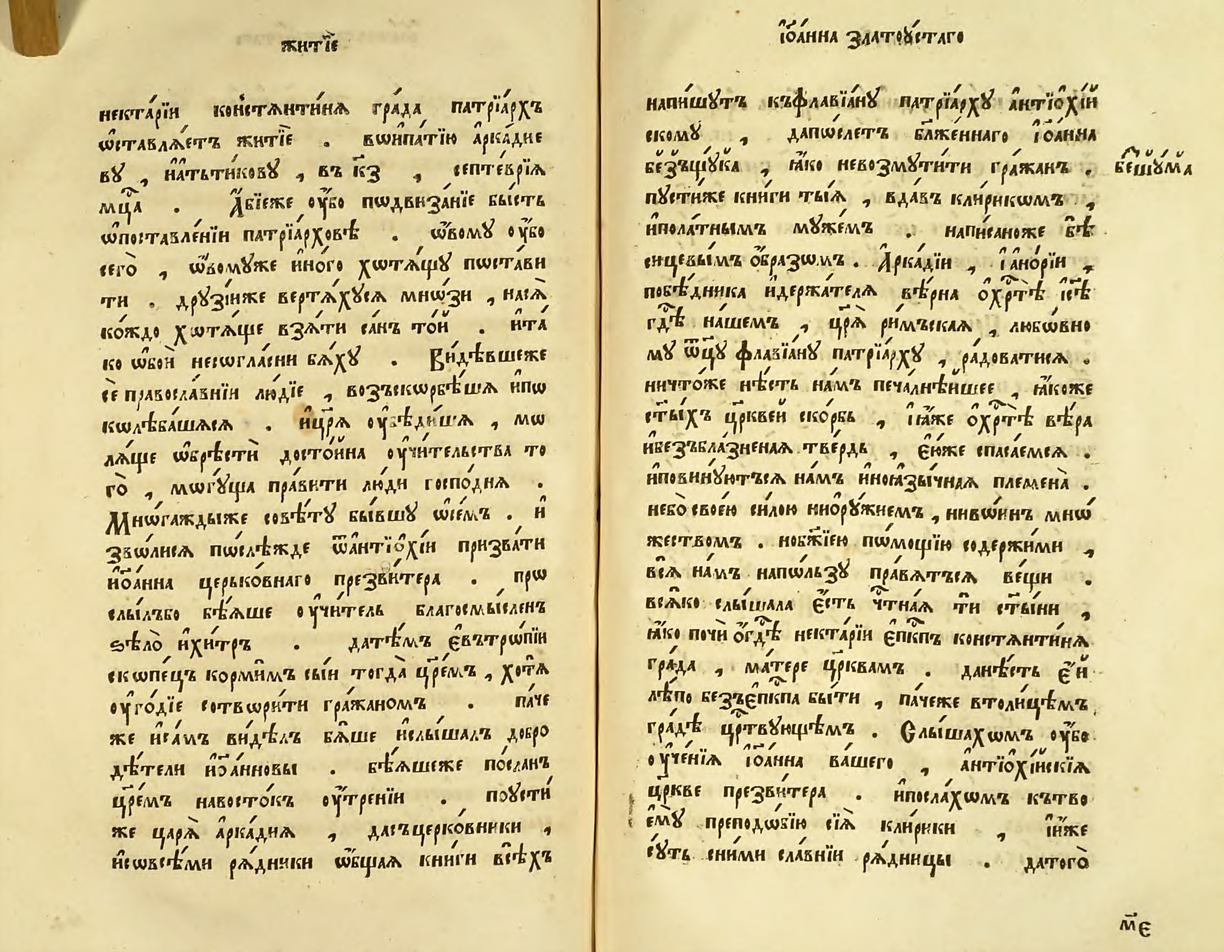 житїе
нектарїи констѧнтинѧ града патрїархъ
ѡставлѧетъ житїе . вѡипатїю аркадие
ву , иатьтикову , въ к҃з , септеврїѧ
мц҃а . Абїеже оубо пѡдвизанїе бысть
ѡпоставленїи патрїарховѣ . ѡвому оубо
сего , ѡвомуже иного хѡтѧщу пѡстави
ти . друзїиже вертѧхусѧ мнѡзи , насѧ
кождо хѡтѧще взѧти санъ той . ита
ко ѡбои несѡгласни бѧху . Видѣвшеже
се православнїи людїе , возъскѡрбѣшѧ ипѡ
кѡлѣбашѧсѧ . ицр҃ѧ оувѣдишѧ , мѡ
лѧще ѡбрѣсти достойна оучительства то
го , мѡгуща правити люди господнѧ .
Мнѡгаждыже совѣту бывшу ѡсемъ . и
звѡлисѧ пѡслѣжде ѿантїохїи призвати
иоанна церьковнаго презвитера . прѡ
слылъбо бѣѧше оучитель благосмысленъ
ѕѣло ихитръ . датѣмъ евътрѡпїи
скѡпецъ кормимъ сыи тогда цр҃емъ , хотѧ
оугодїе сотвѡрити гражаномъ . паче
же исамъ видѣлъ бѧше ислышалъ добро
дѣтели иоанновы . бѣѧшеже посланъ
цр҃емъ навостокъ оутренїи . поусти
же царѧ аркадиѧ , дасъцерковники ,
исѡвсѣми рѧдники ѡбщаѧ книги всѣхъ
їоанна златоустаго
напишутъ къфлавїану патрїарху антїохїй
скому , дапѡслетъ блаженнаго їоанна
безъщука , ꙗко невозмутити гражан .
бешума
пустиже книги тыѧ , вдавъ клирикѡмъ ,
иполатнымъ мужемъ . написаноже бѣ
сицевымъ образѡмъ . Аркадїи , їанорїи ,
побѣдника идержателѧ вѣрна охр҃тѣ їс҃ѣ
гд҃ѣ нашемъ , цр҃ѧ римъскаѧ , любѡвно
му ѿцу флавїану патрїарху , радоватисѧ .
ничтоже нѣсть намъ печалнѣйшее , ꙗкоже
ст҃ыхъ цр҃квей скорбь , їꙗже охр҃тѣ вѣра
ибезъблазненаѧ твердь , еюже спасаемсѧ .
иповинуютъсѧ намъ иноꙗзычнаѧ племена .
небо своею силою ниоружиемъ , нивѡин мнѡ
жествомъ . нобж҃їею пѡмощїю содержими ,
всѧ намъ напѡльзу правѧтъсѧ вещи .
всѧко слышала есть чт҃наѧ ти ст҃ыни ,
ꙗко почи огд҃ѣ нектарїи еп҃кпъ констѧнтинѧ
града , матере цр҃квамъ . данѣсть ей
лѣпо безъеп҃кпа быти , пачеже втолицѣмъ
градѣ цр҃твующемъ . Слышахомъ оубо
оученїѧ їоанна вашего , антїохїйскїѧ
цр҃кве презвитера . ипослахѡмъ кътво
ему преподѡбїю сїѧ клирики , їиже
суть сними славнїи рѧдницы . датого
м҃е